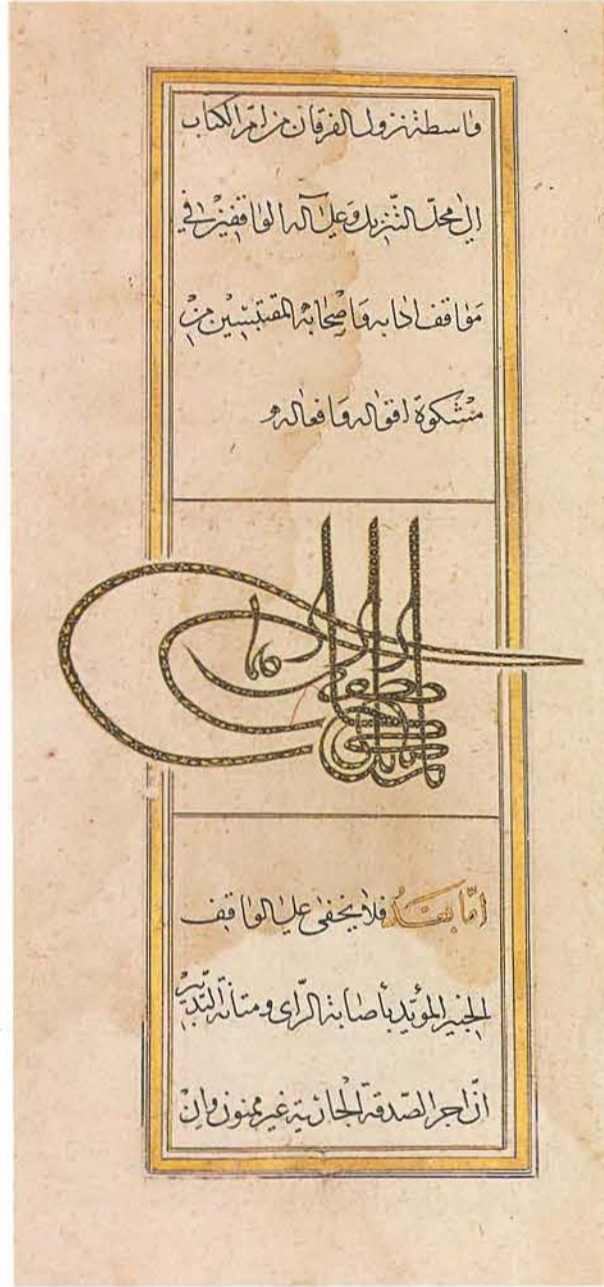 واسطة نزول الفرقان من ام الكتاب
الى محلّ التّنزيل وعلى آله الواقفين في
مواقف ادابه واصحابه المقتبسين من
مشكوة اقواله وافعاله و
امّا بعد فلا يخفى على الواقف
الخبير المؤيّد باصابة الرّاى ومتانة التّدبير
انّ اجر الصّدقة الجارية غير ممنون وان